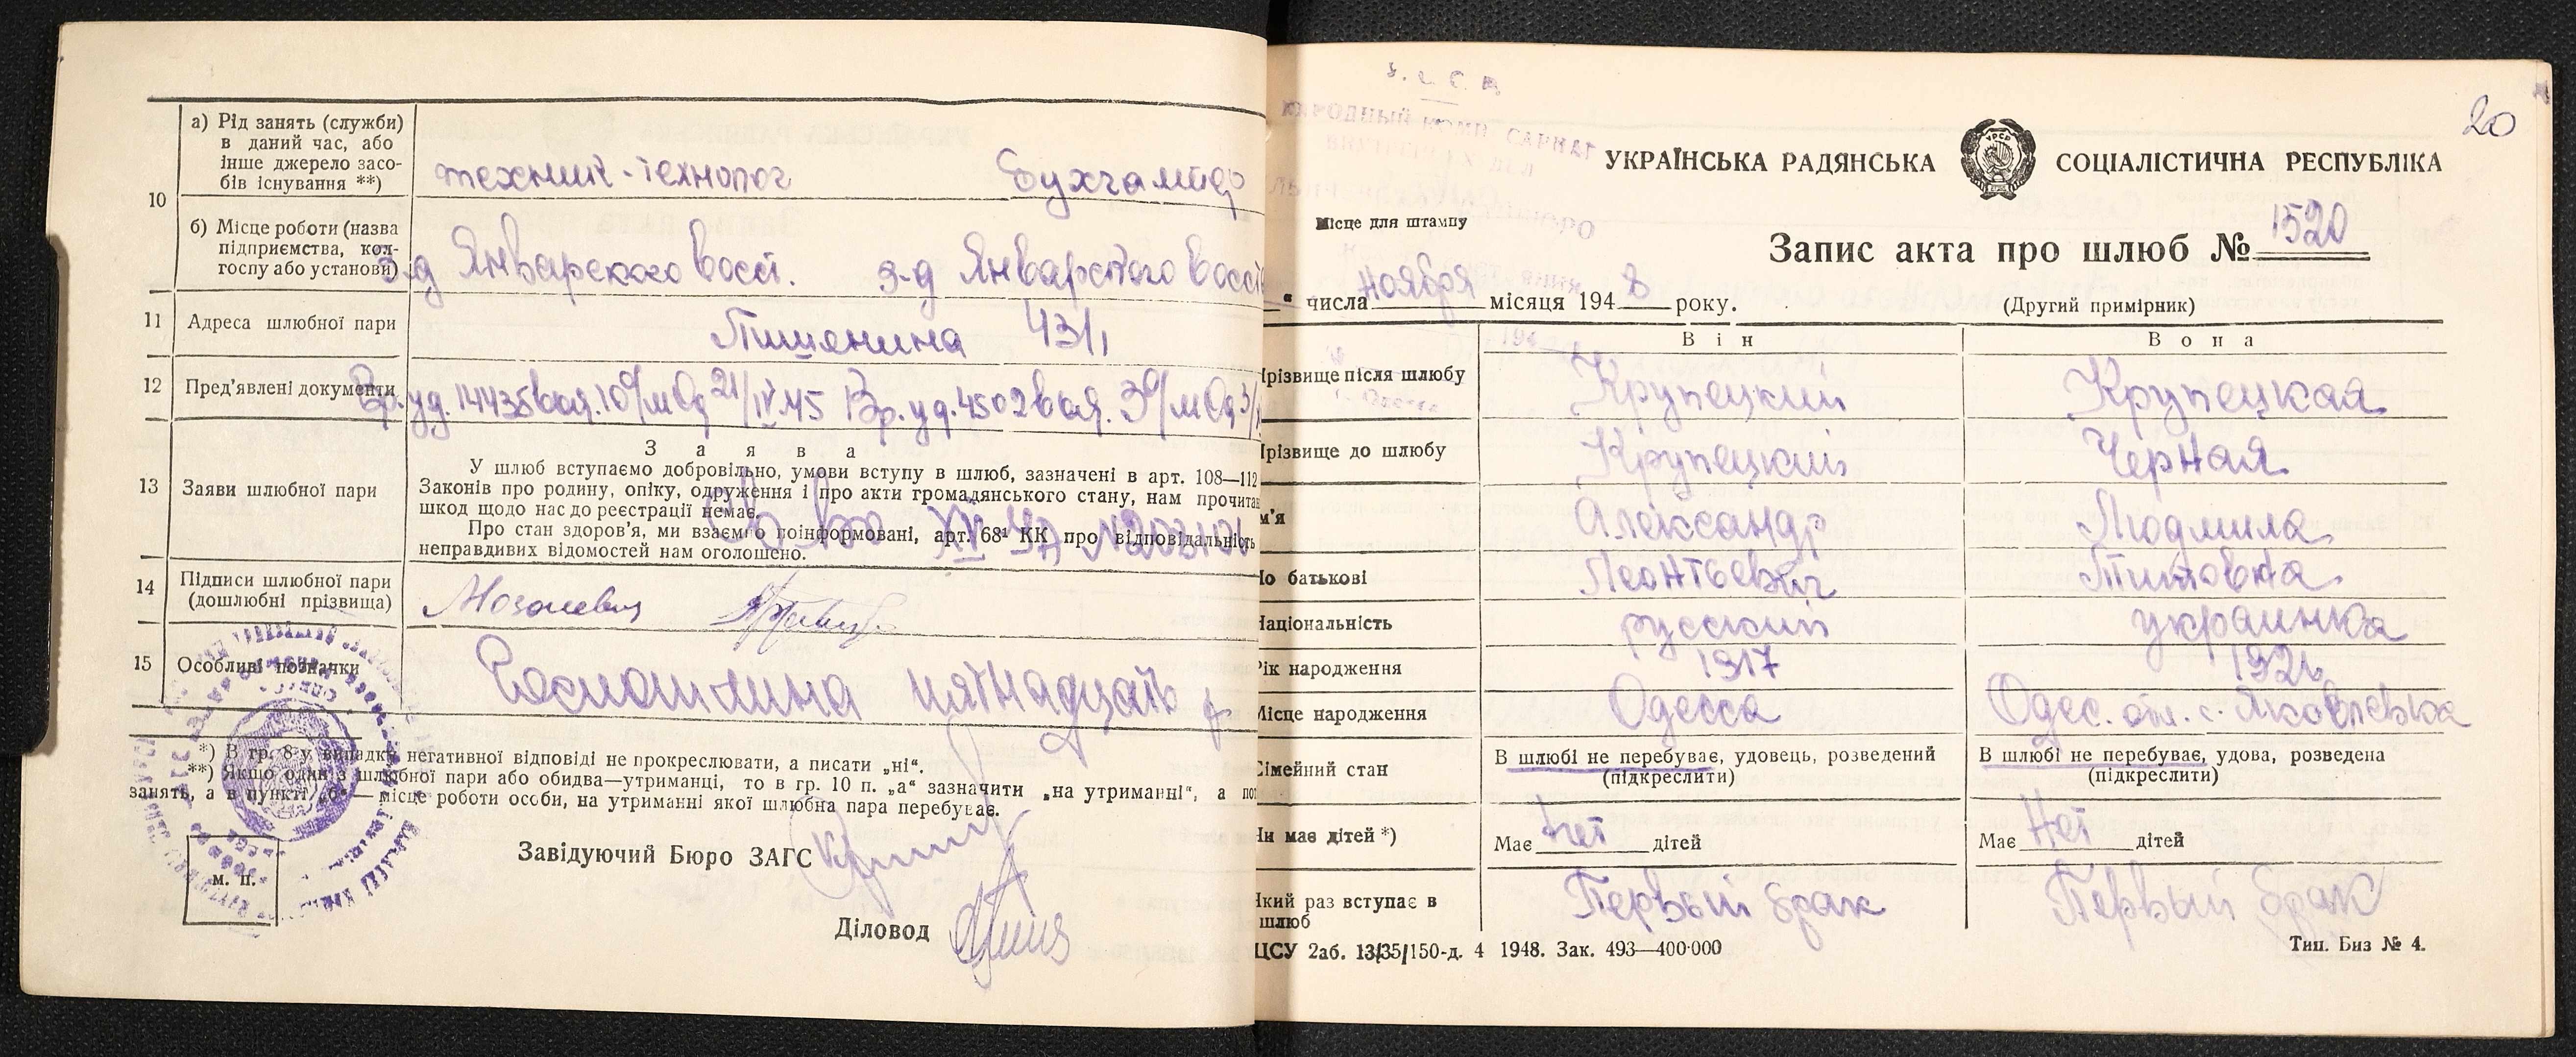 10
а) Рід занять (служби)
в даний час, або
інше джерело засо-
бів існування **)
техник-технолог бухгалтер
б) Місце роботи (назва
підприємства, кол-
госпу або установи)
з-д Январского восст. з-д Январского восст
11 Адреса шлюбної пари
43/1
12 Пред’явлені документи
Вр. уд. 14435 выд. 10 о/м Од 21/IV.45 Вр. уд. 4502 выд. 3 о/м Од 3/
13 Заяви шлюбної пари
З а я в а
У шлюб вступаємо добровільно, умови вступу в шлюб, зазначені в арт. 108—112
Законів про родину, опіку, одруження і про акти громадянського стану, нам прочита
шкод щодо нас до реєстрації немає.
Про стан здоров’я, ми взаємно поінформовані, арт. 68¹ КК про відповідальність
неправдивих відомостей нам оголошено.
14 Підписи шлюбної пари
(дошлюбні прізвища)
15 Особливі позначки
Госпошлина пятнадцать р
*) В гр. 8 у випадку негативної відповіді не прокреслювати, а писати „ні“.
**) Якщо один з шлюбної пари або обидва—утриманці, то в гр. 10 п. „а“ зазначити „на утриманні“, а пот
занять, а в пункті „б“ — місце роботи особи, на утриманні якої шлюбна пара перебуває.
Завідуючий Бюро ЗАГС
м. п.
Діловод
20
У. С. С. Р.
НАРОДНЫЙ КОМИССАРИАТ
УКРАЇНСЬКА РАДЯНСЬКА СОЦІАЛІСТИЧНА РЕСПУБЛІКА
Місце для штампу
Запис акта про шлюб № 1520
“ числа ноября місяця 1948 року.
(Другий примірник)
В і н В о н а
Прізвище після шлюбу Крупецкий Крупецкая
Прізвище до шлюбу Крупецкий Черная
м’я Александр Людмила
По батькові Леонтьевич Титовна
Національність русский украинка
Рік народження 1917 192
Місце народження Одесса Одес. обл. с. Яковлевка
Сімейний стан
В шлюбі не перебуває, удовець, розведений
(підкреслити)
В шлюбі не перебуває, удова, розведена
(підкреслити)
Чи має дітей *) Має нет дітей Має Нет дітей
Який раз вступає в
шлюб
Первый брак Первый брак
ЦСУ 2аб. 13/35/150-д. 4 1948. Зак. 493—400·000
Тип. Биз № 4.